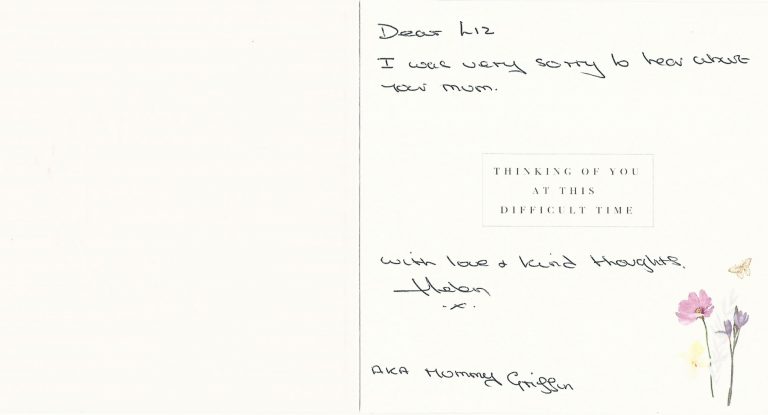 Dear Liz
I was very sorry to hear about
your mum.
THINKING OF YOU
AT THIS
DIFFICULT TIME
with love & kind thoughts.
Helen
x
AKA Mummy Griffin